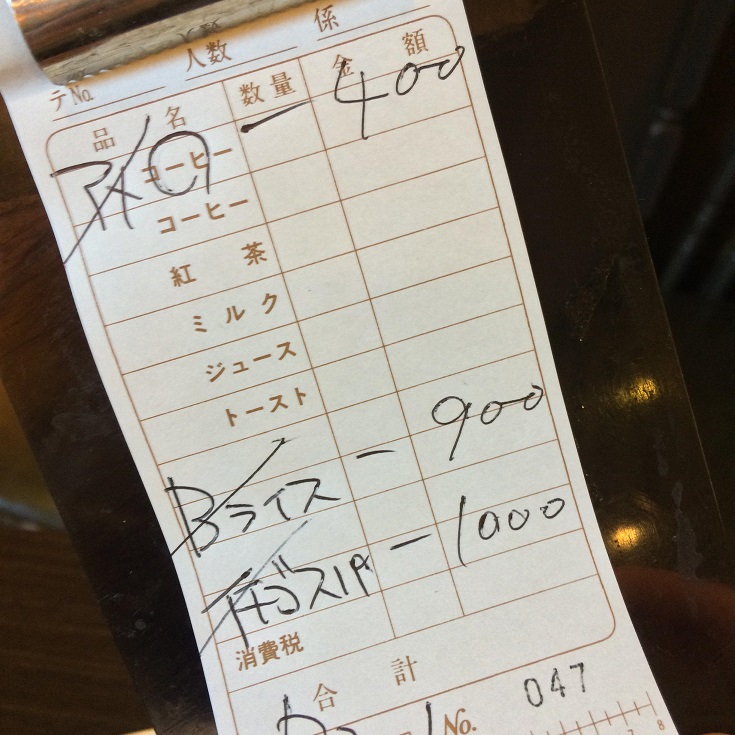 人数 係
テNo.
品名 数量 金額
コーヒー 一 400
コーヒー
紅茶
ミルク
ジュース
トースト
Bライス 一 900
スパ 一 1000
消費税
合計
No. 047
7 8